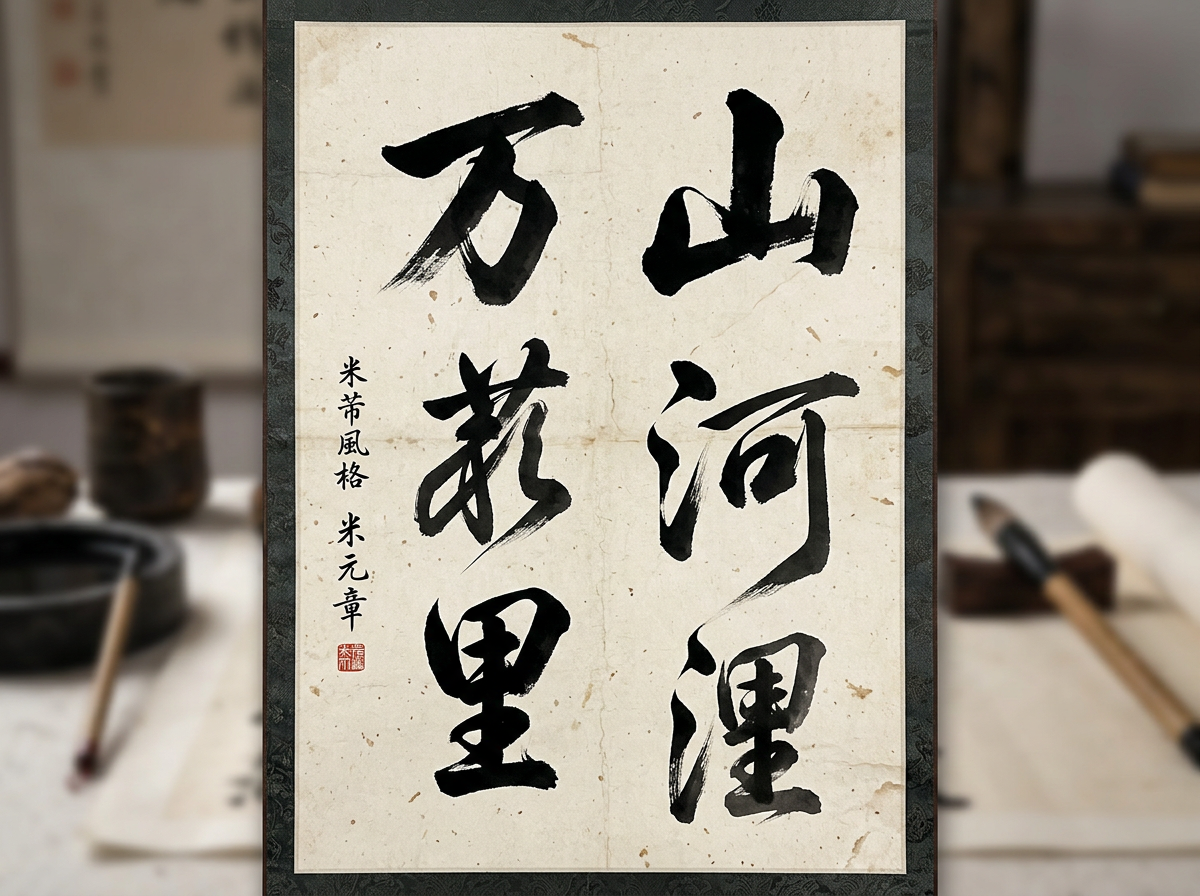 山河浬
万里
米芾風格 米元章